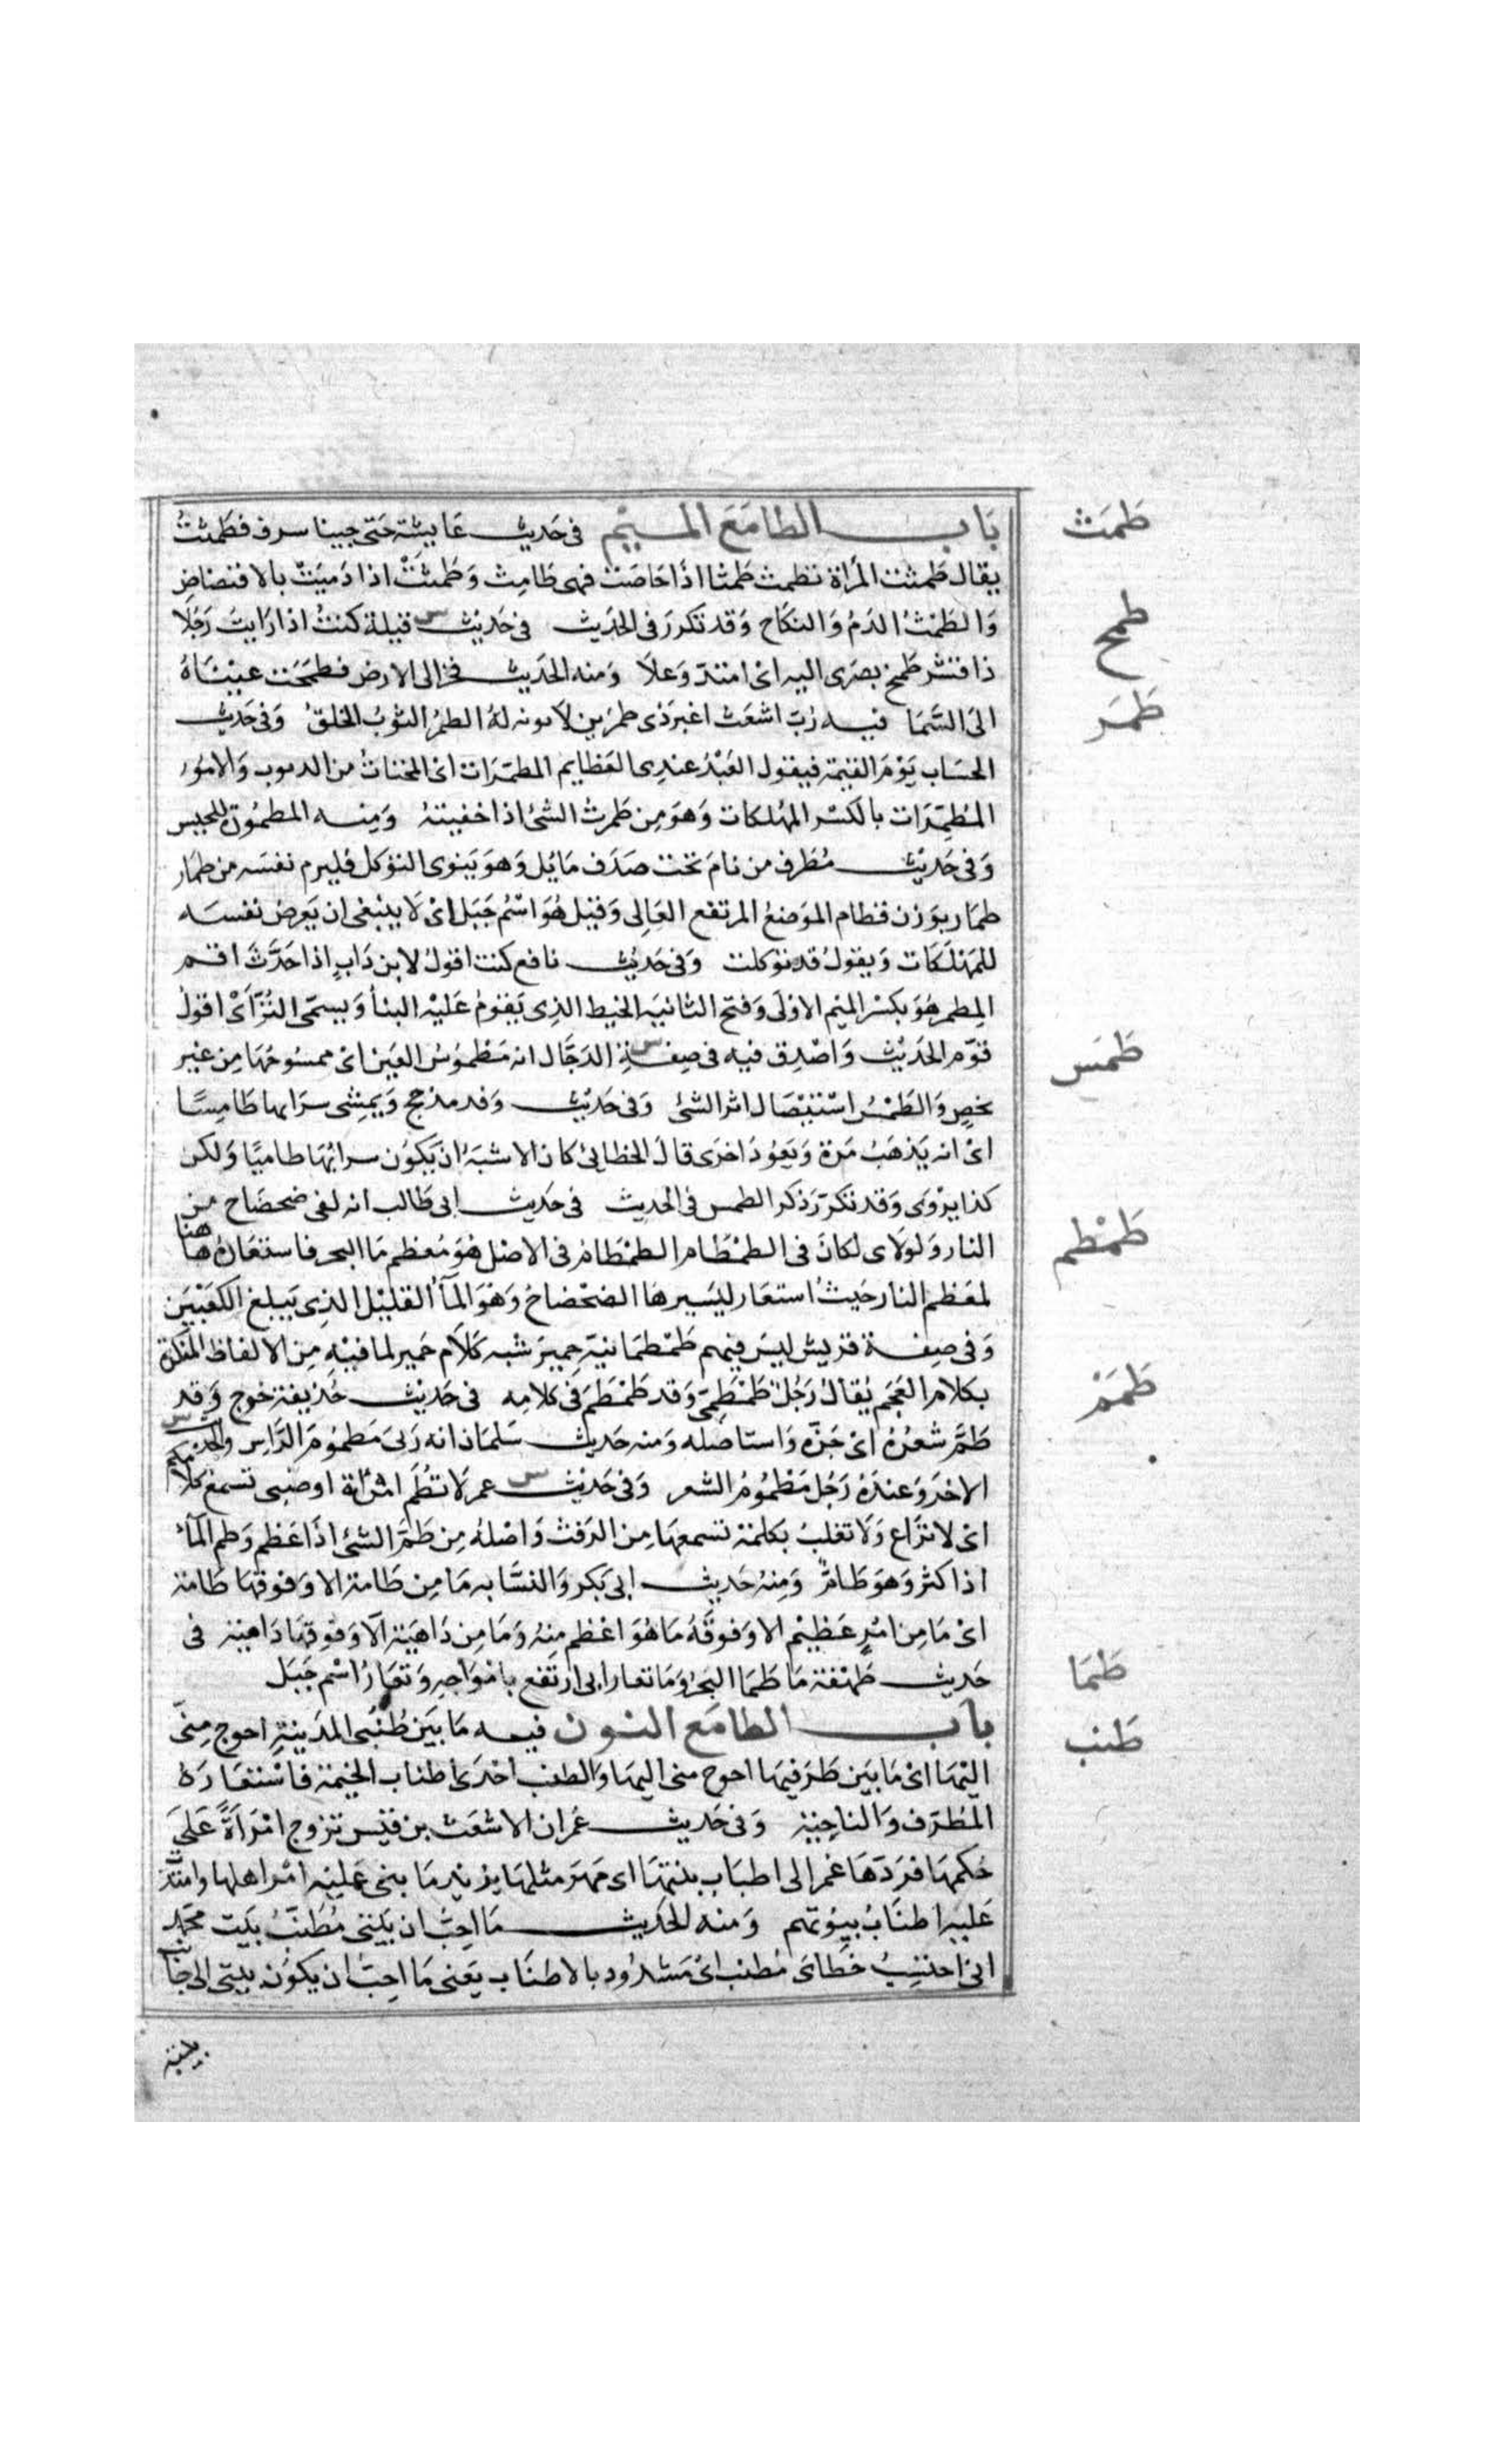 باب الطا مع الميم في حديث عايشة حتى جينا سرف فطمثت
طمث
يقال طمثت المراة تطمث طمثا اذا حاضت فهي طامث وطمثت اذا دميت بالافتضاض
والطمث الدم والنكاح وقد تكرر في الحديث في حديث قيلة كنت اذا رايت رجلا
طمح
ذا قشر طمح بصري اليه اي امتد وعلا ومنه الحديث فخر الى الارض فطمحت عيناه
الى السما فيه رب اشعث اغبر ذي طمرين لا يوبه له الطمر الثوب الخلق وفي حديث
طمر
الحساب يوم القيمة فيقول العبد عندي العظايم المطمرات اي المخبات من الذنوب والامور
المطمرات بالكسر المهلكات وهو من طمرت الشئ اذا اخفيته ومنه المطمورة للحبس
وفي حديث مطرف من نام تحت صدف مايل وهو ينوي التوكل فليرم نفسه من طمار
طمار بوزن قطام الموضع المرتفع العالي وقيل هو اسم جبل اي لا ينبغي ان يعرض نفسه
للمهلكات ويقول قد توكلت وفي حديث نافع كنت اقول لابن داب اذا حدث اقم
المطمر هو بكسر الميم الاولى وفتح الثانيه الخيط الذي يقوم عليه البنا ويسمى التر اي اقول
قوم الحديث واصدق فيه في صفة الدجال انه مطموس العين اي ممسوحها من غير
طمس
بخص والطمس استيصال اثر الشئ وفي حديث وفد مذحج ويمشي سرابها طامسا
اي انه يذهب مرة ويعود اخرى قال الخطابي كان الاشبه ان يكون سرابها طاميا ولكن
كذا يروى وقد تكرر ذكر الطمس في الحديث في حديث ابي طالب انه لفي ضحضاح من
طمطم
النار ولولاي لكان في الطمطام الطمطام في الاصل هو معظم ما البحر فاستعاره هاهنا
لمعظم النار حيث استعار ليسيرها الضحضاح وهو المآ القليل الذي يبلغ الكعبين
وفي صفة قريش ليس فيهم طمطمانية حمير شبه كلام حمير لما فيه من الالفاظ المنكرة
بكلام العجم يقال رجل طمطمي وقد طمطم في كلامه في حديث حذيفة خرج وقد
طمم
طم شعره اي جزه واستاصله ومنه حديث سلمان انه رئي مطموم الراس والحديث
الاخر وعنده رجل مطموم الشعر وفي حديث عمر لا تطم امراة او صبي تسمع كلامكم
اي لا تراع ولا تغلب بكلمة تسمعها من الرفث واصله من طم الشئ اذا عظم وطم المآ
اذا كثر وهو طام ومنه حديث ابي بكر والنسابه ما من طامة الا وفوقها طامة
اي ما من امر عظيم الا وفوقه ما هو اعظم منه وما من داهية الا وفوقها داهية في
حديث طهفة ما طما البحر وما تعار اي ارتفع بامواجه وتعار اسم جبل
طما
باب الطا مع النون فيه ما بين طنبي المدينة احوج مني
طنب
اليها اي ما بين طرفيها احوج مني اليها والطنب احد اطناب الخيمة فاستعاره
للطرف والناحية وفي حديث عمر ان الاشعث بن قيس تزوج امراة على
حكمها فردها عمر الى اطناب بيتها اي مهر مثلها يريد ما بني عليه امر اهلها وامتد
عليه اطناب بيوتهم ومنه الحديث ما احب ان بيتي مطنب بيت محمد
اني احتسب خطاي مطنب اي مشدود بالاطناب يعني ما احب ان يكون بيتي الى جانب
بيته